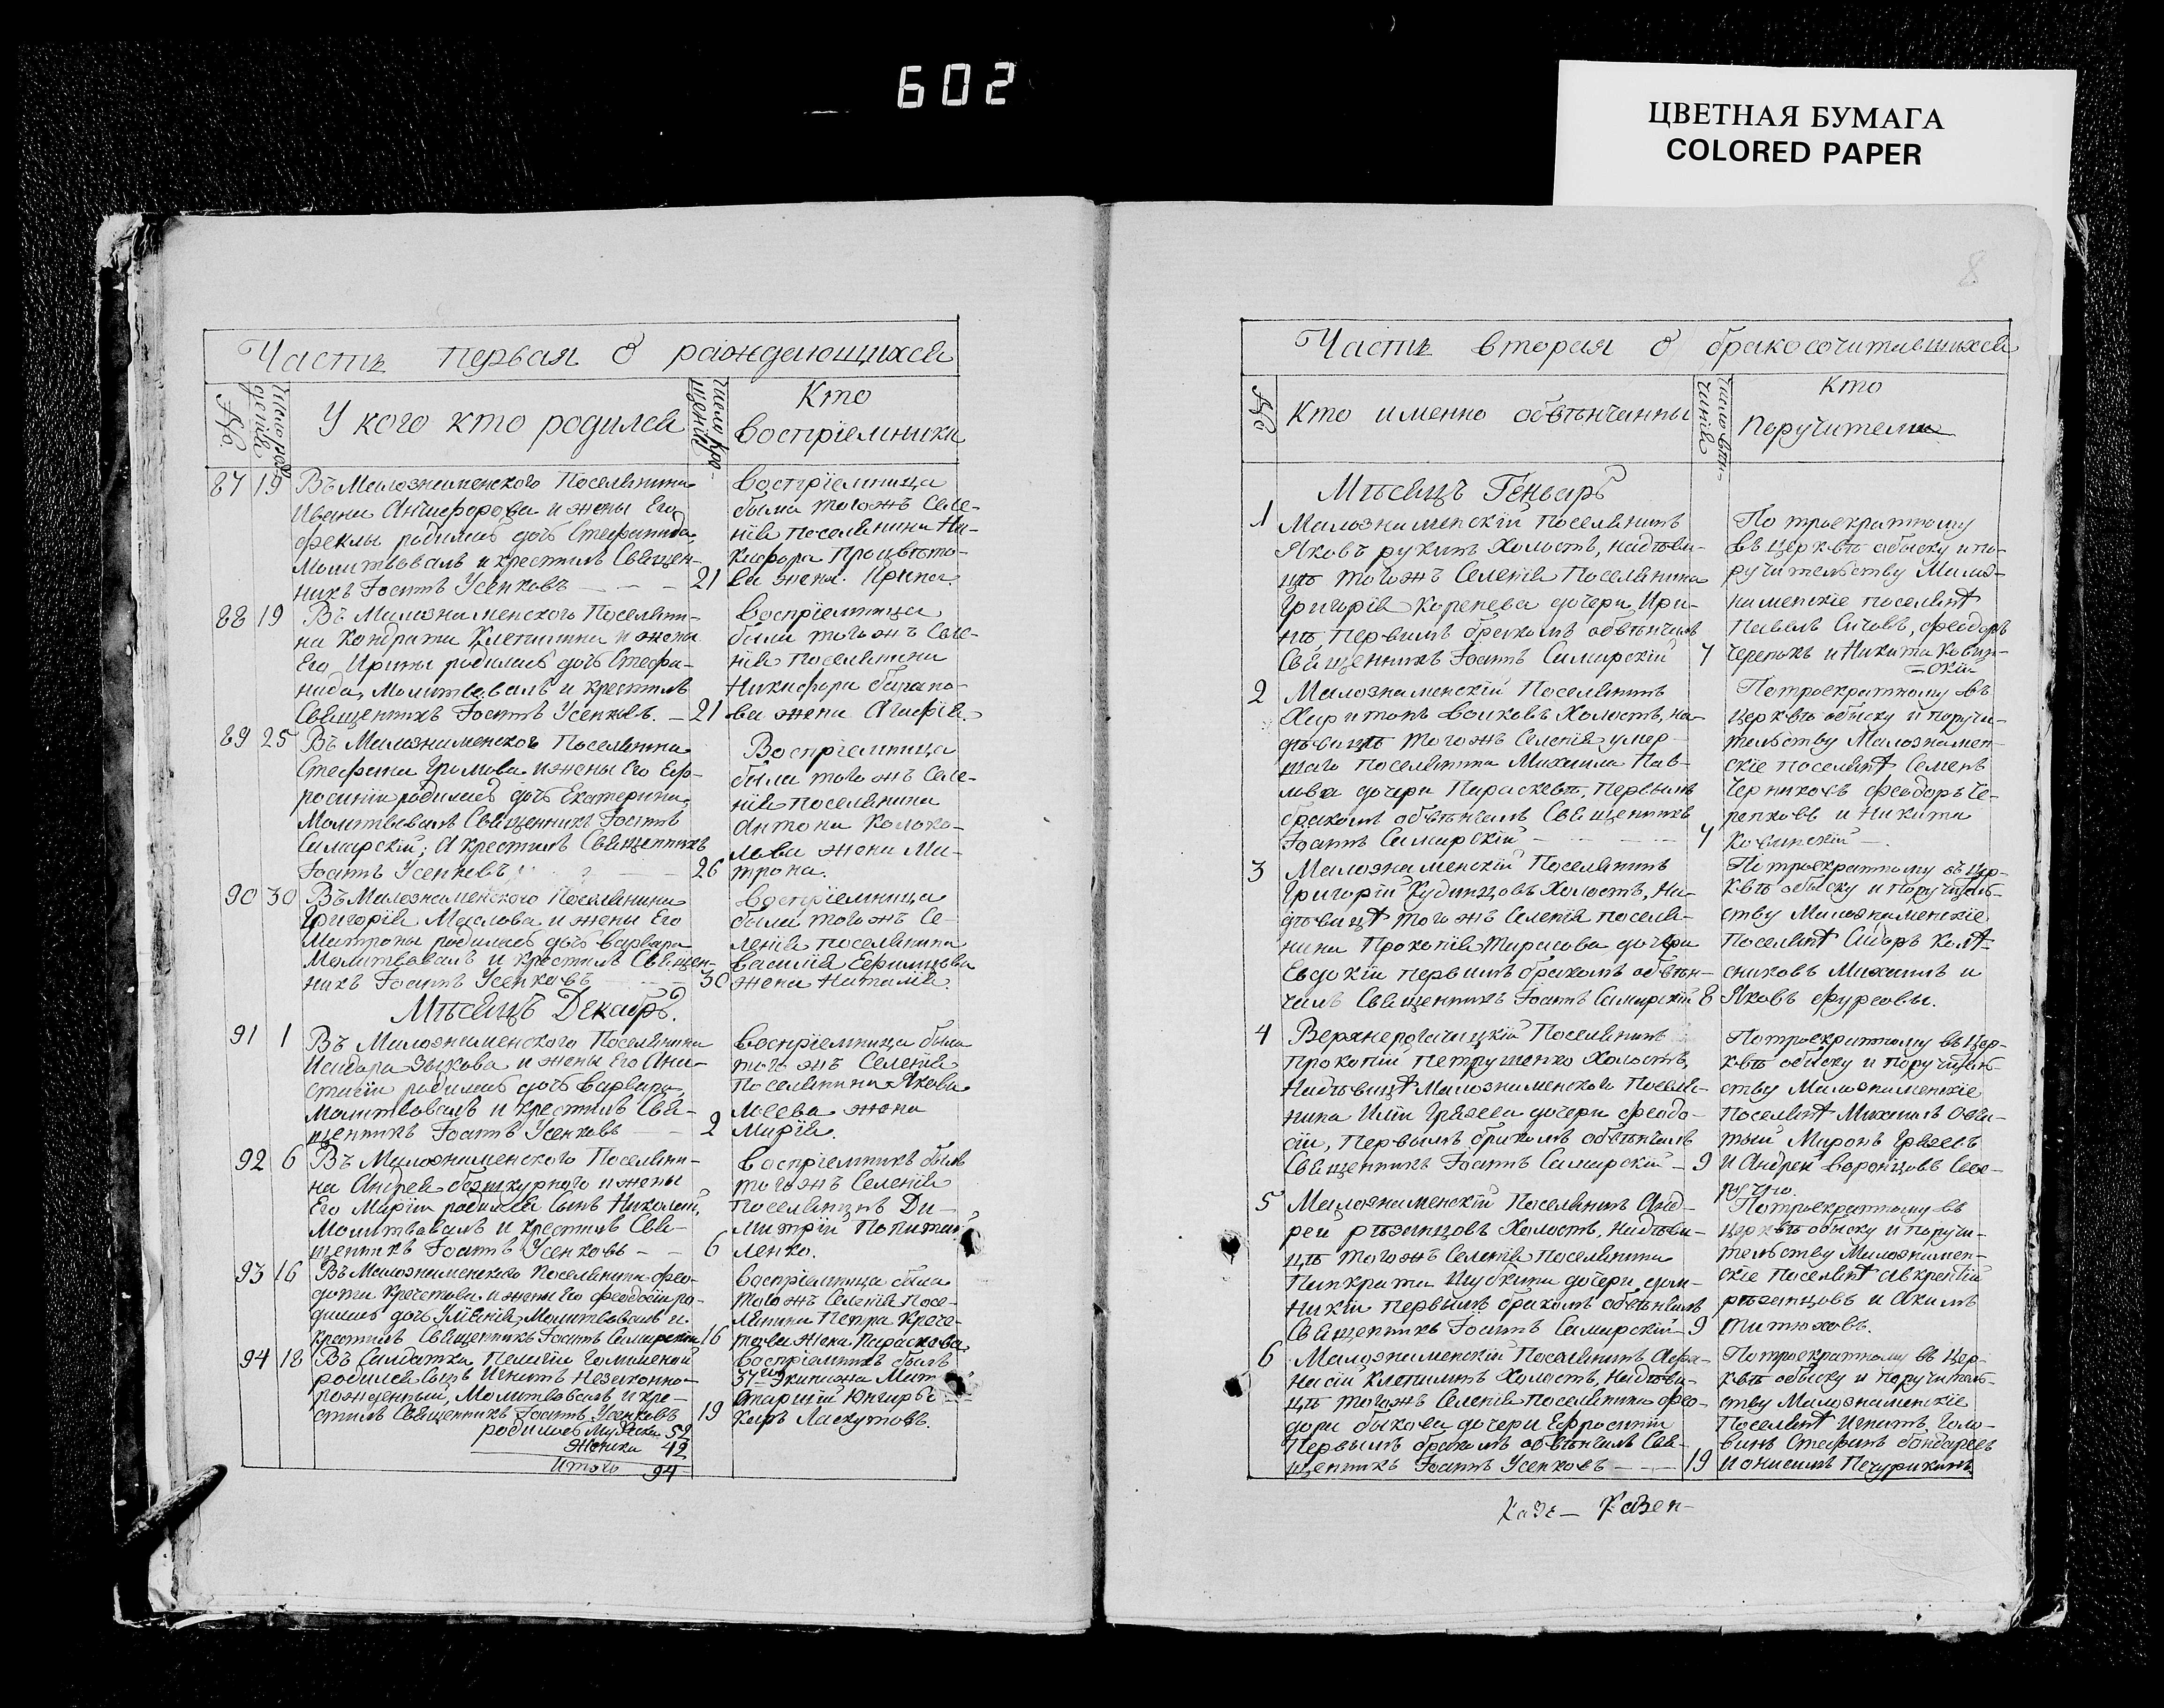 602
ЦВЕТНАЯ БУМАГА
COLORED PAPER
Часть первая о раждающихся
№
Число рож-
денія
У кого кто родился
Число кре-
щенія
Кто
воспріемники
87 19 Въ Малознаменского Поселянина
Ивана Ачиеферова и жены Его
Феклы родилась дочь Стефанида,
Молитвовалъ и крестилъ Священ-
никъ Іоаннъ Усенковъ 21
воспріемница
была тогожъ Селе-
нія поселянина Ни-
кифора Процвето-
ва жена Ирина.
88 19 Въ Малознаменского Поселяни-
на Кондрата Клепинина и жены
Его Ирины родилась дочь Стефа-
нида, Молитвовалъ и крестилъ
Священникъ Іоаннъ Усенковъ. 21
воспріемница
была тогожъ Селе-
нія Поселянина
Никифора барано-
ва жена Агафія
89 25 Въ Малознаменского Поселянина
Стефана Громова и жены Его Еф-
росиніи родилась дочь Екатерина,
Молитвовалъ Священникъ Іоаннъ
Самарскій, а крестилъ Священникъ
Іоаннъ Усенковъ 26
Воспріемница
была тогожъ Селе-
нія поселянина
Антона Колоко-
лова жена Ма-
трона.
90 30 Въ Малознаменского Поселянина
Григорія Маслова и жены Его
Матроны родилась дочь Варвара
Молитвовалъ и крестилъ Священ-
никъ Іоаннъ Усенковъ 30
воспріемница
была тогожъ Се-
ленія поселянина
Василія Ефимцова
жена Наталія.
Мѣсяцъ Декабрь.
91 1 Въ Малознаменского Поселянина
Исидора Зыкова и жены Его Ана-
стасіи родилась дочь Варвара,
молитвовалъ и крестилъ Свя-
щенникъ Іоаннъ Усенковъ 2
воспріемница была
тогожъ Селенія
Поселянина Якова
Моева жена
Марія.
92 6 Въ Малознаменского Поселяни-
на Андрея башкурного и жены
Его Маріи родился Сынъ Николай,
Молитвовалъ и крестилъ Свя-
щенникъ Іоаннъ Усенковъ 6
воспріемникъ былъ
тогожъ Селенія
Поселянинъ Ди-
митрій Попитай-
ленко.
93 16 Въ Малознаменского Поселянина Фео-
дота Кречетова и жены Его Феодосіи ро-
дилась дочь Уліянія, Молитвовалъ и
крестилъ Священникъ Іоаннъ Самарскій 16
воспріемница была
тогожъ Селенія Посе-
лянина Петра Крече-
това жена Параскева
94 18 Въ Салдатки Пелагіи Голишеной
родился Сынъ Игнатъ Незаконно-
рожденный, Молитвовалъ и кре-
стилъ Священникъ Іоаннъ Усенковъ 19
воспріемникъ былъ
37го Экипажа Мат
старшій Юнгиръ
Карпъ Ласкутовъ.
родилось Мужеска 52
Женска 42
Итого 94
8
Часть вторая о бракосочитавшихся
№
Кто именно обвѣнчанны
Число вѣн-
чанія
Кто
поручители
Мѣсяцъ Геньварь
1 Малознаменскій Поселянинъ
Яковъ рукинъ Холостъ, на дѣви-
цѣ тогожъ Селенія Поселянина
Григорія Коренева дочери Ири-
нѣ, первымъ бракомъ обвѣнчалъ
Священникъ Іоаннъ Самарскій 7
По троекратному
въ церквѣ обыску и по-
ручительству Мало-
знаменскіе поселянѣ
Павелъ Сичовъ, Феодоръ
Черепокъ и Никита Ковин-
скій
2 Малознаменскій Поселянинъ
Харитонъ Волковъ Холостъ, на
дѣвицѣ тогожъ Селенія умер-
шаго Поселянина Михаила Пав-
лова дочери Параскевѣ, Первымъ
бракомъ обвѣнчалъ Священникъ
Іоаннъ Самарскій 7
По троекратному въ
церквѣ обыску и поручи-
тельству Малознамен-
скіе поселянѣ Семенъ
Черниковъ Феодоръ Че-
репковъ и Никита
Ковинскій
3 Малознаменскій Поселянинъ
Григорій Кудинцовъ Холостъ, На
дѣвицѣ тогожъ Селенія поселя-
нина Прокопія Тарасова дочери
Евдокіи первымъ бракомъ обвѣн-
чалъ Священникъ Іоаннъ Самарскій 8
По троекратному въ цер-
квѣ обыску и поручитель-
ству Малознаменскіе
Поселянѣ Сидоръ Колѣ-
сниковъ Михаилъ и
Яковъ Фурсовы.
4 Верхнерогачицкій Поселянинъ
Прокопій Петрушенко Холостъ,
На дѣвицѣ Малознаменского Поселя-
нина Иліи Грязева дочери Феодо-
сіи, первымъ бракомъ обвѣнчалъ
Священникъ Іоаннъ Самарскій 9
По троекратному въ Цер-
квѣ обыску и поручитель-
ству Малознаменскіе
поселянѣ Михаилъ бога-
тый Миронъ Грязевъ
и Андрей Воронцовъ Свое-
ручно.
5 Малознаменскій Поселянинъ Анд-
рей рѣзанцовъ Холостъ, на дѣви-
цѣ тогожъ Селенія Поселянина
Панкрата Шубкина дочери дом-
никіи первымъ бракомъ обвѣнчалъ
Священникъ Іоаннъ Самарскій 9
По троекратному въ
церквѣ обыску и поручи-
тельству Малознамен-
скіе Поселянѣ Авкрентій
рѣзанцовъ и Акимъ
Титюховъ.
6 Малознаменскій Поселянинъ Афа-
насій Клепининъ Холостъ, На дѣви-
цѣ тогожъ Селенія Поселянина Фео-
дора быкова дочери Ефросиніи
Первымъ бракомъ обвѣнчалъ Свя-
щенникъ Іоаннъ Усенковъ 19
По троекратному въ Цер-
квѣ обыску и поручитель-
ству Малознаменскіе
Поселянѣ Игнатъ Голо-
винъ Стефанъ бондаревъ
и Онисимъ Печурикинъ
Казе- Казен-